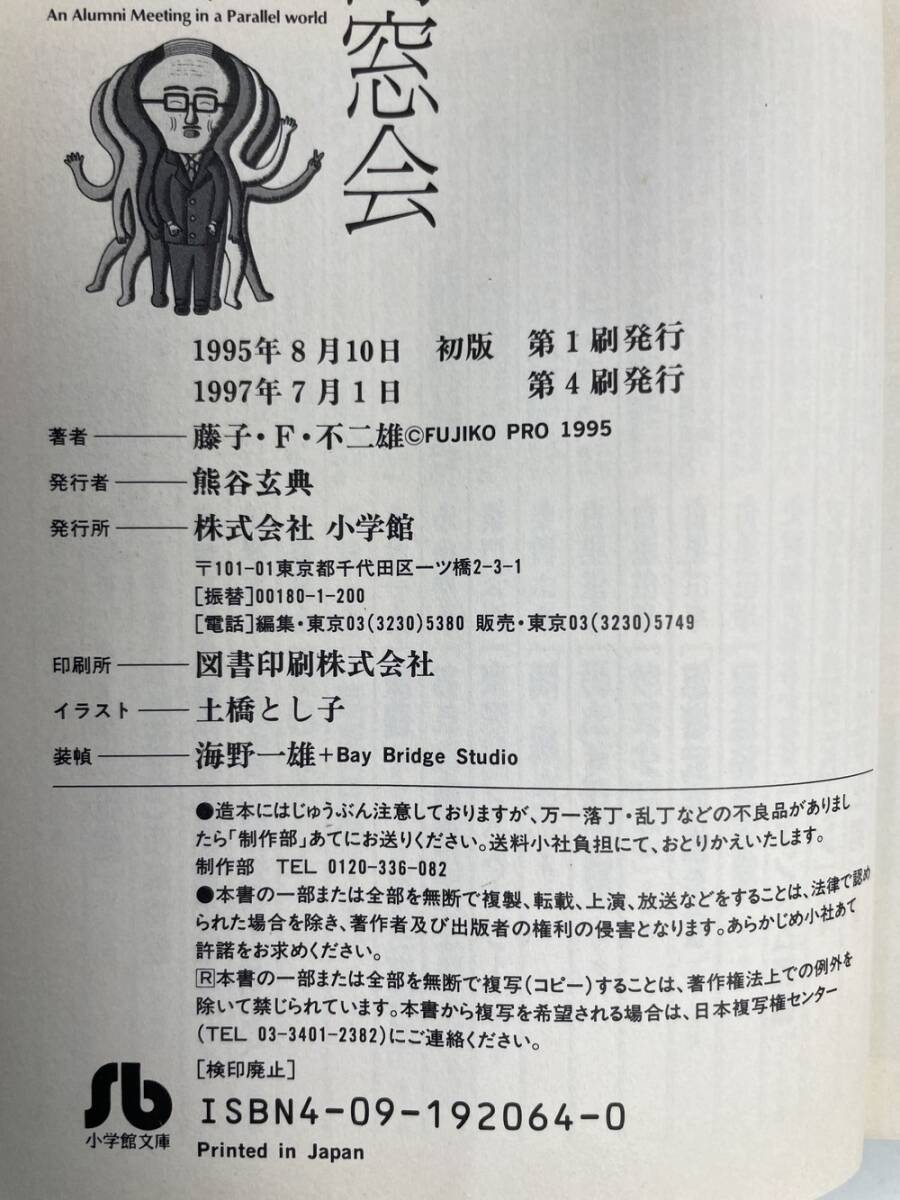 An Alumni Meeting in a Parallel world
窓会
1995年8月10日 初版 第1刷発行
1997年7月1日 第4刷発行
著者 藤子・F・不二雄©FUJIKO PRO 1995
発行者 熊谷玄典
発行所 株式会社 小学館
〒101-01東京都千代田区一ツ橋2-3-1
[振替]00180-1-200
[電話]編集・東京03(3230)5380 販売・東京03(3230)5749
印刷所 図書印刷株式会社
イラスト 土橋とし子
装幀 海野一雄+Bay Bridge Studio
●造本にはじゅうぶん注意しておりますが、万一落丁・乱丁などの不良品がありまし
たら「制作部」あてにお送りください。送料小社負担にて、おとりかえいたします。
制作部 TEL 0120-336-082
●本書の一部または全部を無断で複製、転載、上演、放送などをすることは、法律で認め
られた場合を除き、著作者及び出版者の権利の侵害となります。あらかじめ小社あて
許諾をお求めください。
Ⓡ本書の一部または全部を無断で複写(コピー)することは、著作権法上での例外を
除いて禁じられています。本書から複写を希望される場合は、日本複写権センター
(TEL 03-3401-2382)にご連絡ください。
[検印廃止]
Sb
小学館文庫
ISBN4-09-192064-0
Printed in Japan